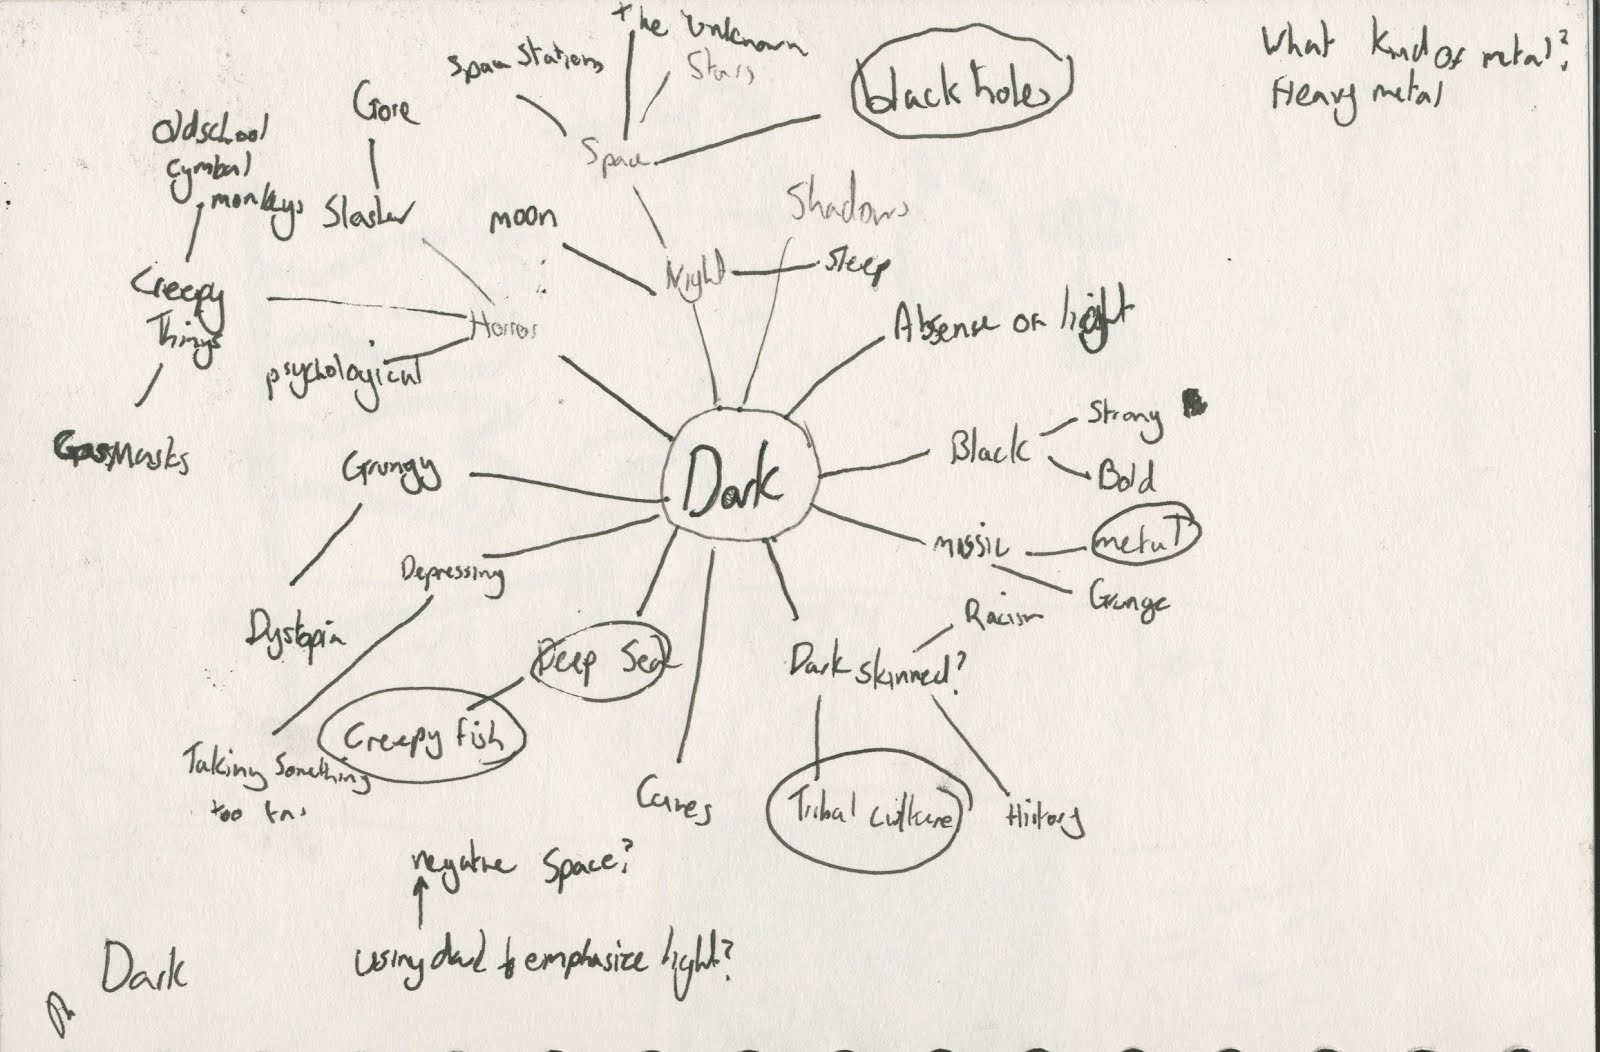 the Unknown
Space Stations
Stars
black holes
What kind of metal?
Heavy metal
Gore
Oldschool
cymbal
monkeys
Space
Slasher
moon
Shadows
Night
Sleep
Creepy
Things
Horror
Absense of light
psychological
Strong
Black
Bold
Gas Masks
Grungy
Dark
music
metal
Depressing
Grunge
Racism
Dystopia
Deep Sea
Dark skinned?
Creepy fish
Taking something
too
Caves
Tribal culture
History
negative Space?
Dark
using dark to emphasize light?